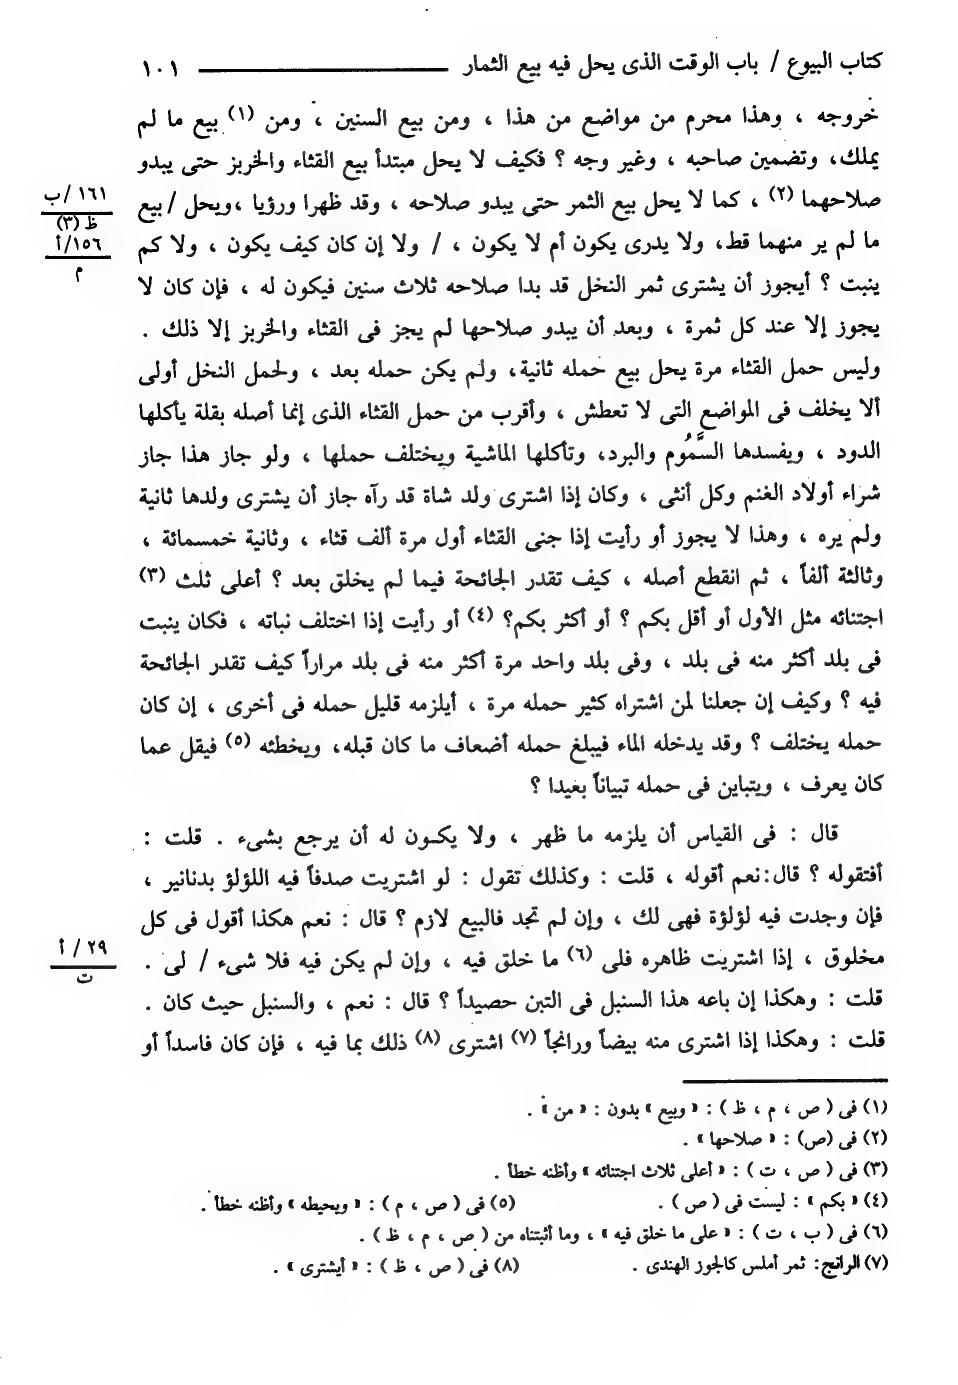 كتاب البيوع / باب الوقت الذى يحل فيه بيع الثمار ١٠١
خروجه ، وهذا محرم من مواضع من هذا ، ومن بيع السنين ، ومن (١) بيع ما لم
يملك، وتضمين صاحبه ، وغير وجه ؟ فكيف لا يحل مبتدأ بيع القثاء والخربز حتى يبدو
صلاحهما (٢) ، كما لا يحل بيع الثمر حتى يبدو صلاحه ، وقد ظهرا ورؤيا ،ويحل / بيع
١٦١ /ب
ظ (٣)
ما لم ير منهما قط، ولا يدرى يكون أم لا يكون ، / ولا إن كان كيف يكون ، ولا كم
١٥٦/أ
م
ينبت ؟ أيجوز أن يشترى ثمر النخل قد بدا صلاحه ثلاث سنين فيكون له ، فإن كان لا
يجوز إلا عند كل ثمرة ، وبعد أن يبدو صلاحها لم يجز فى القثاء والخربز إلا ذلك .
وليس حمل القثاء مرة يحل بيع حمله ثانية، ولم يكن حمله بعد ، ولحمل النخل أولى
ألا يخلف فى المواضع التى لا تعطش ، وأقرب من حمل القثاء الذى إنما أصله بقلة يأكلها
الدود ، ويفسدها السَّمُوم والبرد، وتأكلها الماشية ويختلف حملها ، ولو جاز هذا جاز
شراء أولاد الغنم وكل أنثى ، وكان إذا اشترى ولد شاة قد رآه جاز أن يشترى ولدها ثانية
ولم يره ، وهذا لا يجوز أو رأيت إذا جنى القثاء أول مرة ألف قثاء ، وثانية خمسمائة ،
وثالثة ألفاً ، ثم انقطع أصله ، كيف تقدر الجائحة فيما لم يخلق بعد ؟ أعلى ثلث (٣)
اجتنائه مثل الأول أو أقل بكم ؟ أو أكثر بكم؟ (٤) أو رأيت إذا اختلف نباته ، فكان ينبت
فى بلد أكثر منه فى بلد ، وفى بلد واحد مرة أكثر منه فى بلد مراراً كيف تقدر الجائحة
فيه ؟ وكيف إن جعلنا لمن اشتراه كثير حمله مرة ، أيلزمه قليل حمله فى أخرى ، إن كان
حمله يختلف ؟ وقد يدخله الماء فيبلغ حمله أضعاف ما كان قبله، ويخطئه (٥) فيقل عما
كان يعرف ، ويتباين فى حمله تبياناً بعيدا ؟
قال : فى القياس أن يلزمه ما ظهر ، ولا يكون له أن يرجع بشىء . قلت :
أفتقوله ؟ قال:نعم أقوله ، قلت : وكذلك تقول : لو اشتريت صدفاً فيه اللؤلؤ بدنانير ،
فإن وجدت فيه لؤلؤة فهى لك ، وإن لم تجد فالبيع لازم ؟ قال : نعم هكذا أقول فى كل
مخلوق ، إذا اشتريت ظاهره فلى (٦) ما خلق فيه ، وإن لم يكن فيه فلا شىء / لى .
٢٩ / أ
ت
قلت : وهكذا إن باعه هذا السنبل فى التبن حصيداً ؟ قال : نعم ، والسنبل حيث كان .
قلت : وهكذا إذا اشترى منه بيضاً ورانجاً (٧) اشترى (٨) ذلك بما فيه ، فإن كان فاسداً أو
(١) فى ( ص ، م ، ظ ) : « وبيع » بدون : « من » .
(٢) فى (ص) : « صلاحها » .
(٣) فى ( ص ، ت ) : « أعلى ثلاث اجتنائه » وأظنه خطأ .
(٤) « بكم » : ليست فى ( ص ) . (٥) فى ( ص ، م ) : « ويحيطه » وأظنه خطأ .
(٦) فى ( ب ، ت ) : « على ما خلق فيه » ، وما أثبتناه من ( ص ، م ، ظ ) .
(٧) الرانج: ثمر أملس كالجوز الهندى . (٨) فى ( ص ، ظ ) : « أيشترى » .